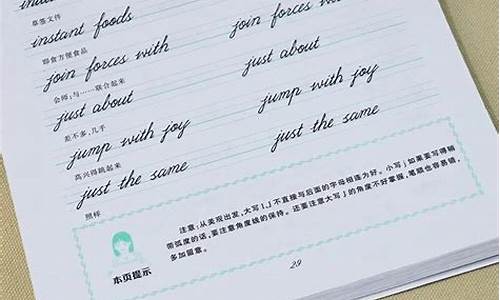 草签文件
instant foods
instant foods
即食方便食品
join forces with
join forces with
会师;与……联合起来
just about
just about
差不多,几乎
jump with joy
jump with joy
高兴得跳起来
just the same
just the same
照样
注意:从美观出发,大写I、J不直接与后面的字母相连为好。小写j如果要写得稍
需弧度的话,要注意角度线的保持。还要注意大写J的角度不好掌握,笔顺也容易错,
多加留意。
本页提示
29